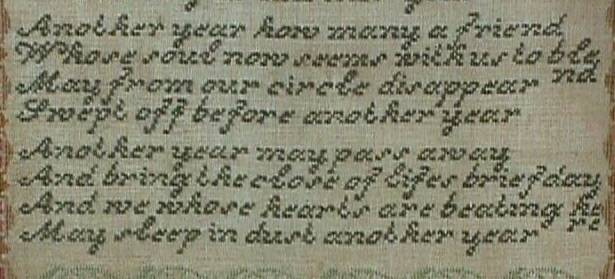 Another year how many a friend
Whose soul now seems with us to ble
nd
May from our circle disappear
Swept off before another year
Another year may pass away
And bring the close of lifes brief day
And we whose hearts are beating he
re
May sleep in dust another year